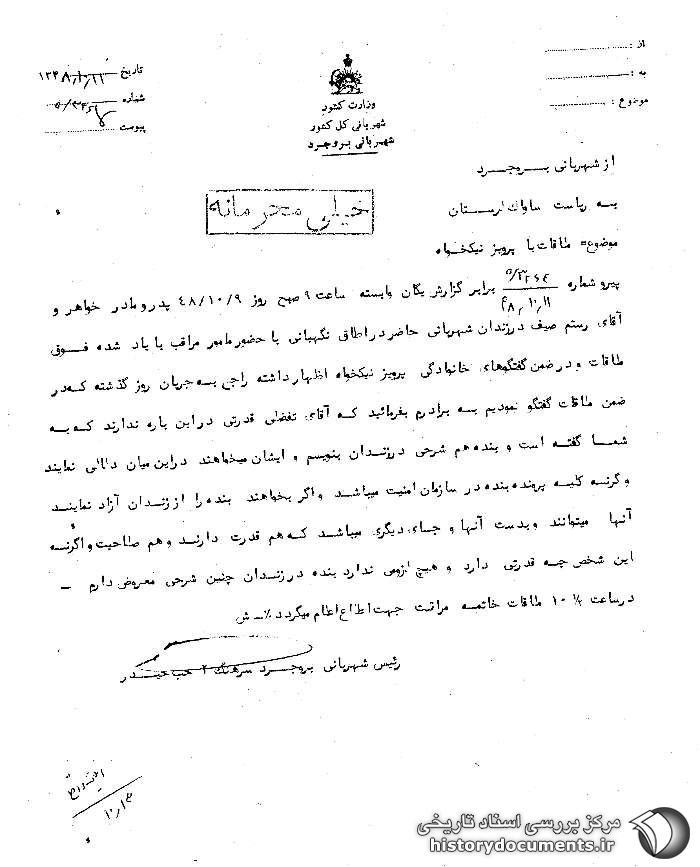 از :
به :
موضوع :
وزارت کشور
شهربانی کل کشور
شهربانی بروجرد
تاریخ
شماره
پیوست
از شهربانی بروجرد
به ریاست ساواک لرستان
موضوع= ملاقات با پرویز نیکخواه
خیلی محرمانه
پیرو شماره برابر گزارش یگان وابسته ساعت ۹ صبح روز ۴۸/۱۰/۹ پدر و مادر خواهر و
آقای رستم صیف در زندان شهربانی حاضر در اطاق نگهبانی با حضور مامور مراقب با یاد شده فوق
ملاقات و در ضمن گفتگوهای خانوادگی پرویز نیکخواه اظهار داشته راجع به جریان روز گذشته که در
ضمن ملاقات گفتگو نمودیم به برادرم بفرمائید که آقای تفضلی قدرتی در این باره ندارند که به
شما گفته است و بنده هم شرحی در زندان بنویسم و ایشان میخواهند در این میان دلالی نمایند
وگرنه کلیه پرونده بنده در سازمان امنیت میباشد و اگر بخواهند بنده را از زندان آزاد نمایند
آنها میتوانند و بدست آنها و جای دیگری میباشد که هم قدرت دارند و هم صلاحیت واگرنه
این شخص چه قدرتی دارد و هیچ لزومی ندارد بنده در زندان چنین شرحی معروض دارم –
در ساعت ۱۰ ملاقات خاتمه مراتب جهت اطلاع اعلام میگردد ٪ ش
رئیس شهربانی بروجرد سرهنگ ۲
مرکز بررسی اسناد تاریخی
historydocuments.ir